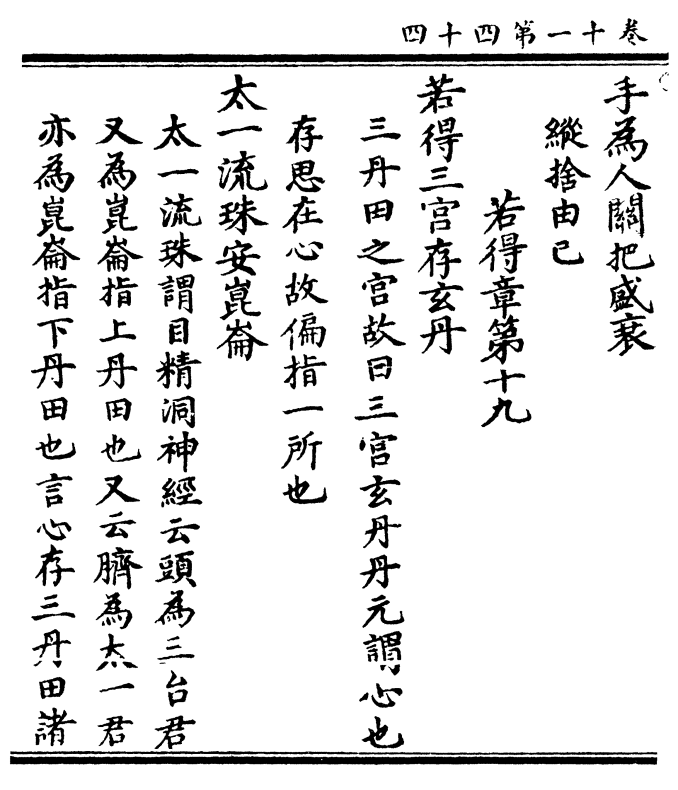 卷十一第四十四
手為人關把盛衰
縱捨由已
若得章第十九
若得三宮存玄丹
三丹田之宮故曰三宮玄丹丹元謂心也
存思在心故偏指一所也
太一流珠安崑崙
太一流珠謂目精洞神經云頭為三台君
又為崑崙指上丹田也又云臍為太一君
亦為崑崙指下丹田也言心存三丹田諸